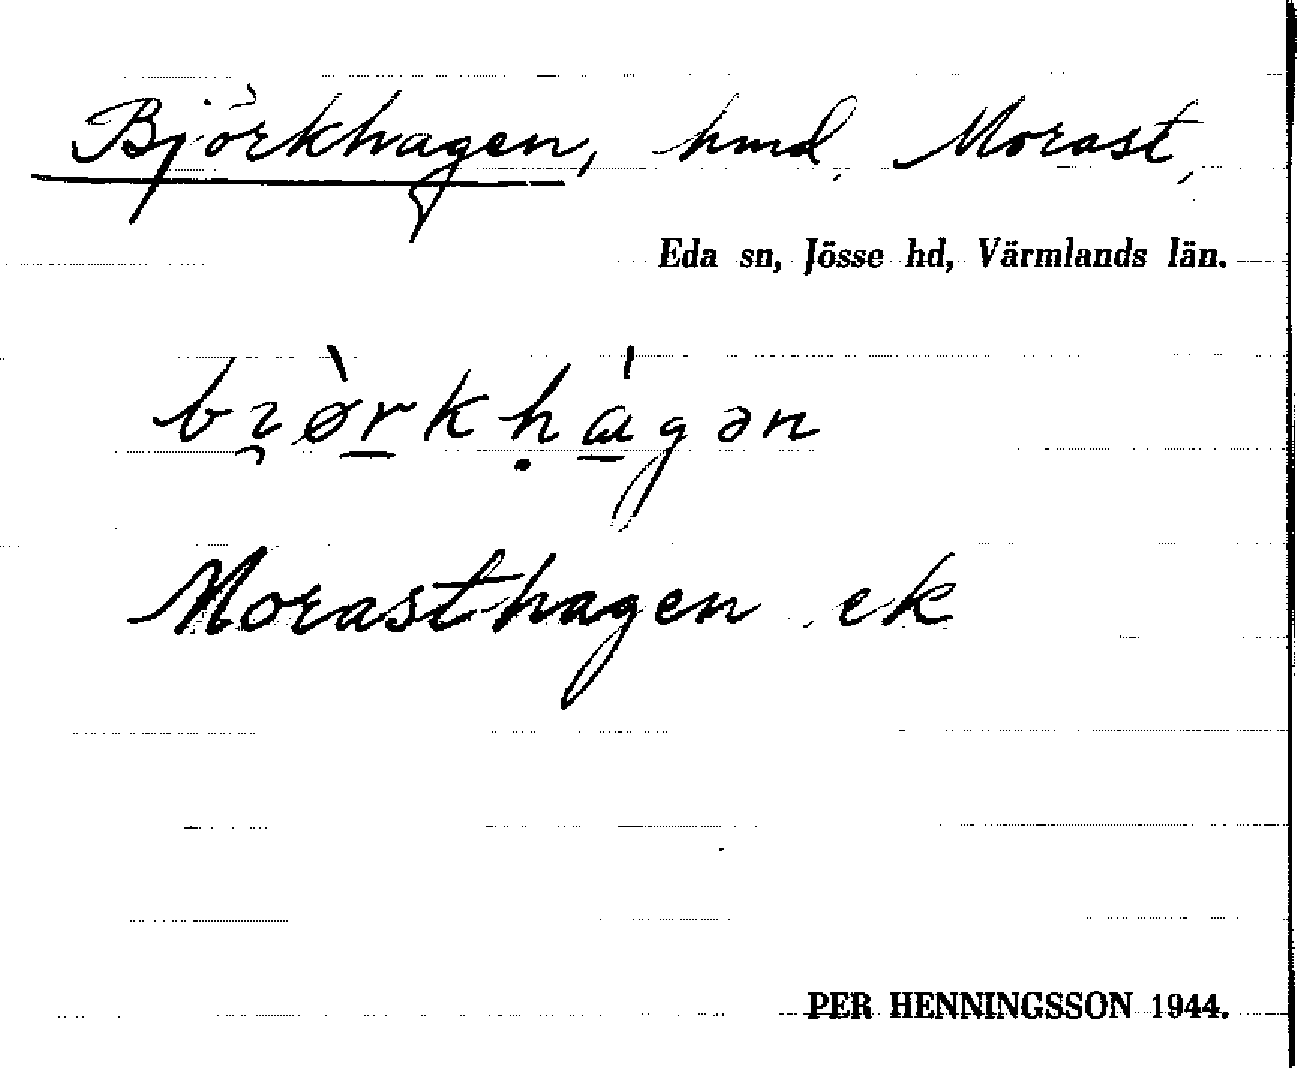 Björkhagen, hmd, Morast,
Eda sn, Jösse hd, Värmlands län.
bi̯ø̀r̲kḥɑ̲́gən
Morasthagen ek
PER HENNINGSSON 1944.